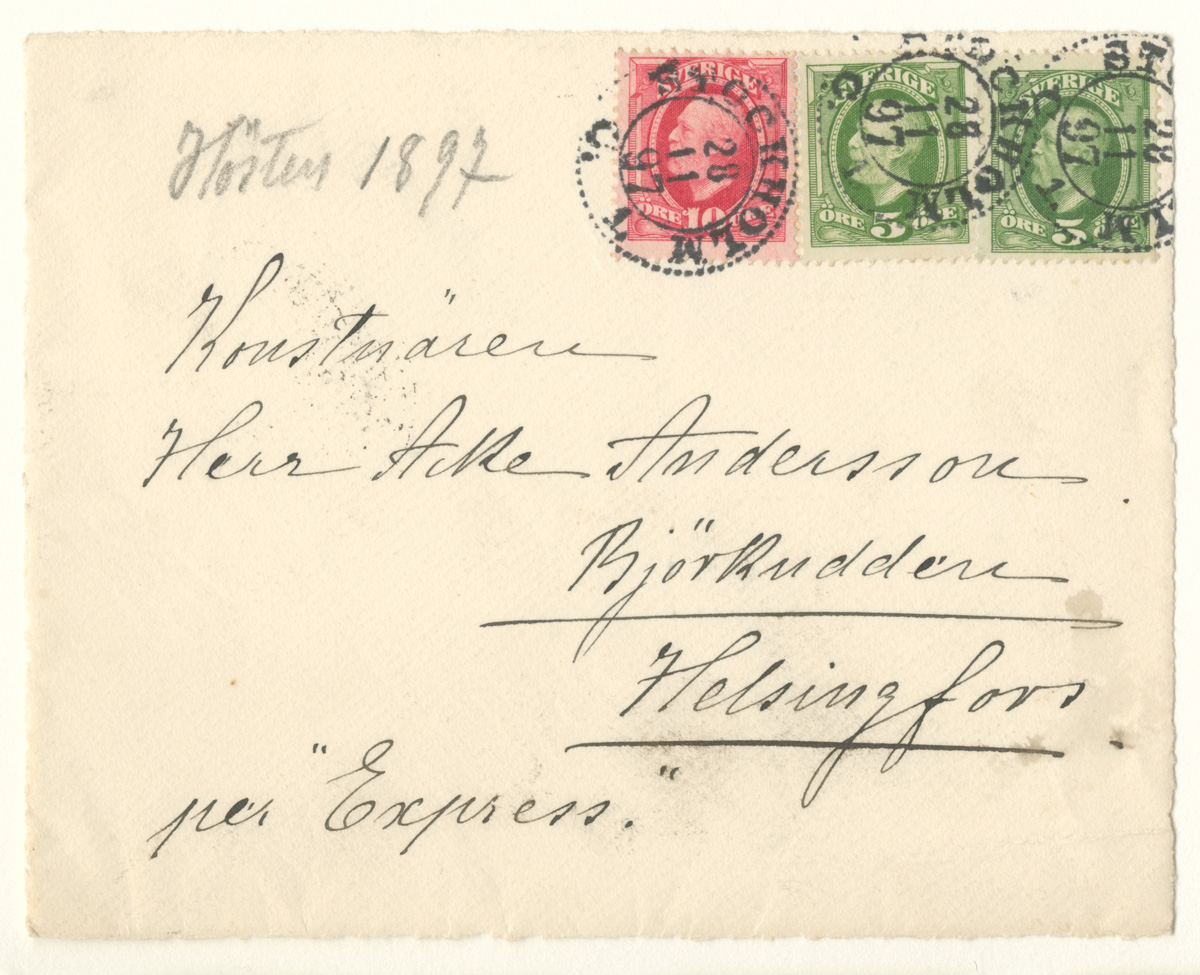 Hösten 1897
SVERIGE
ÖRE 10 ÖRE
SVERIGE
ÖRE 5 ÖRE
SVERIGE
ÖRE 5 ÖRE
STOCKHOLM 1. C.
28
11
97
STOCKHOLM 1. C.
28
11
97
STOCKHOLM 1. C.
28
11
97
Konstnären
Herr Acke Andersson
Björkudden
Helsingfors
per "Express."